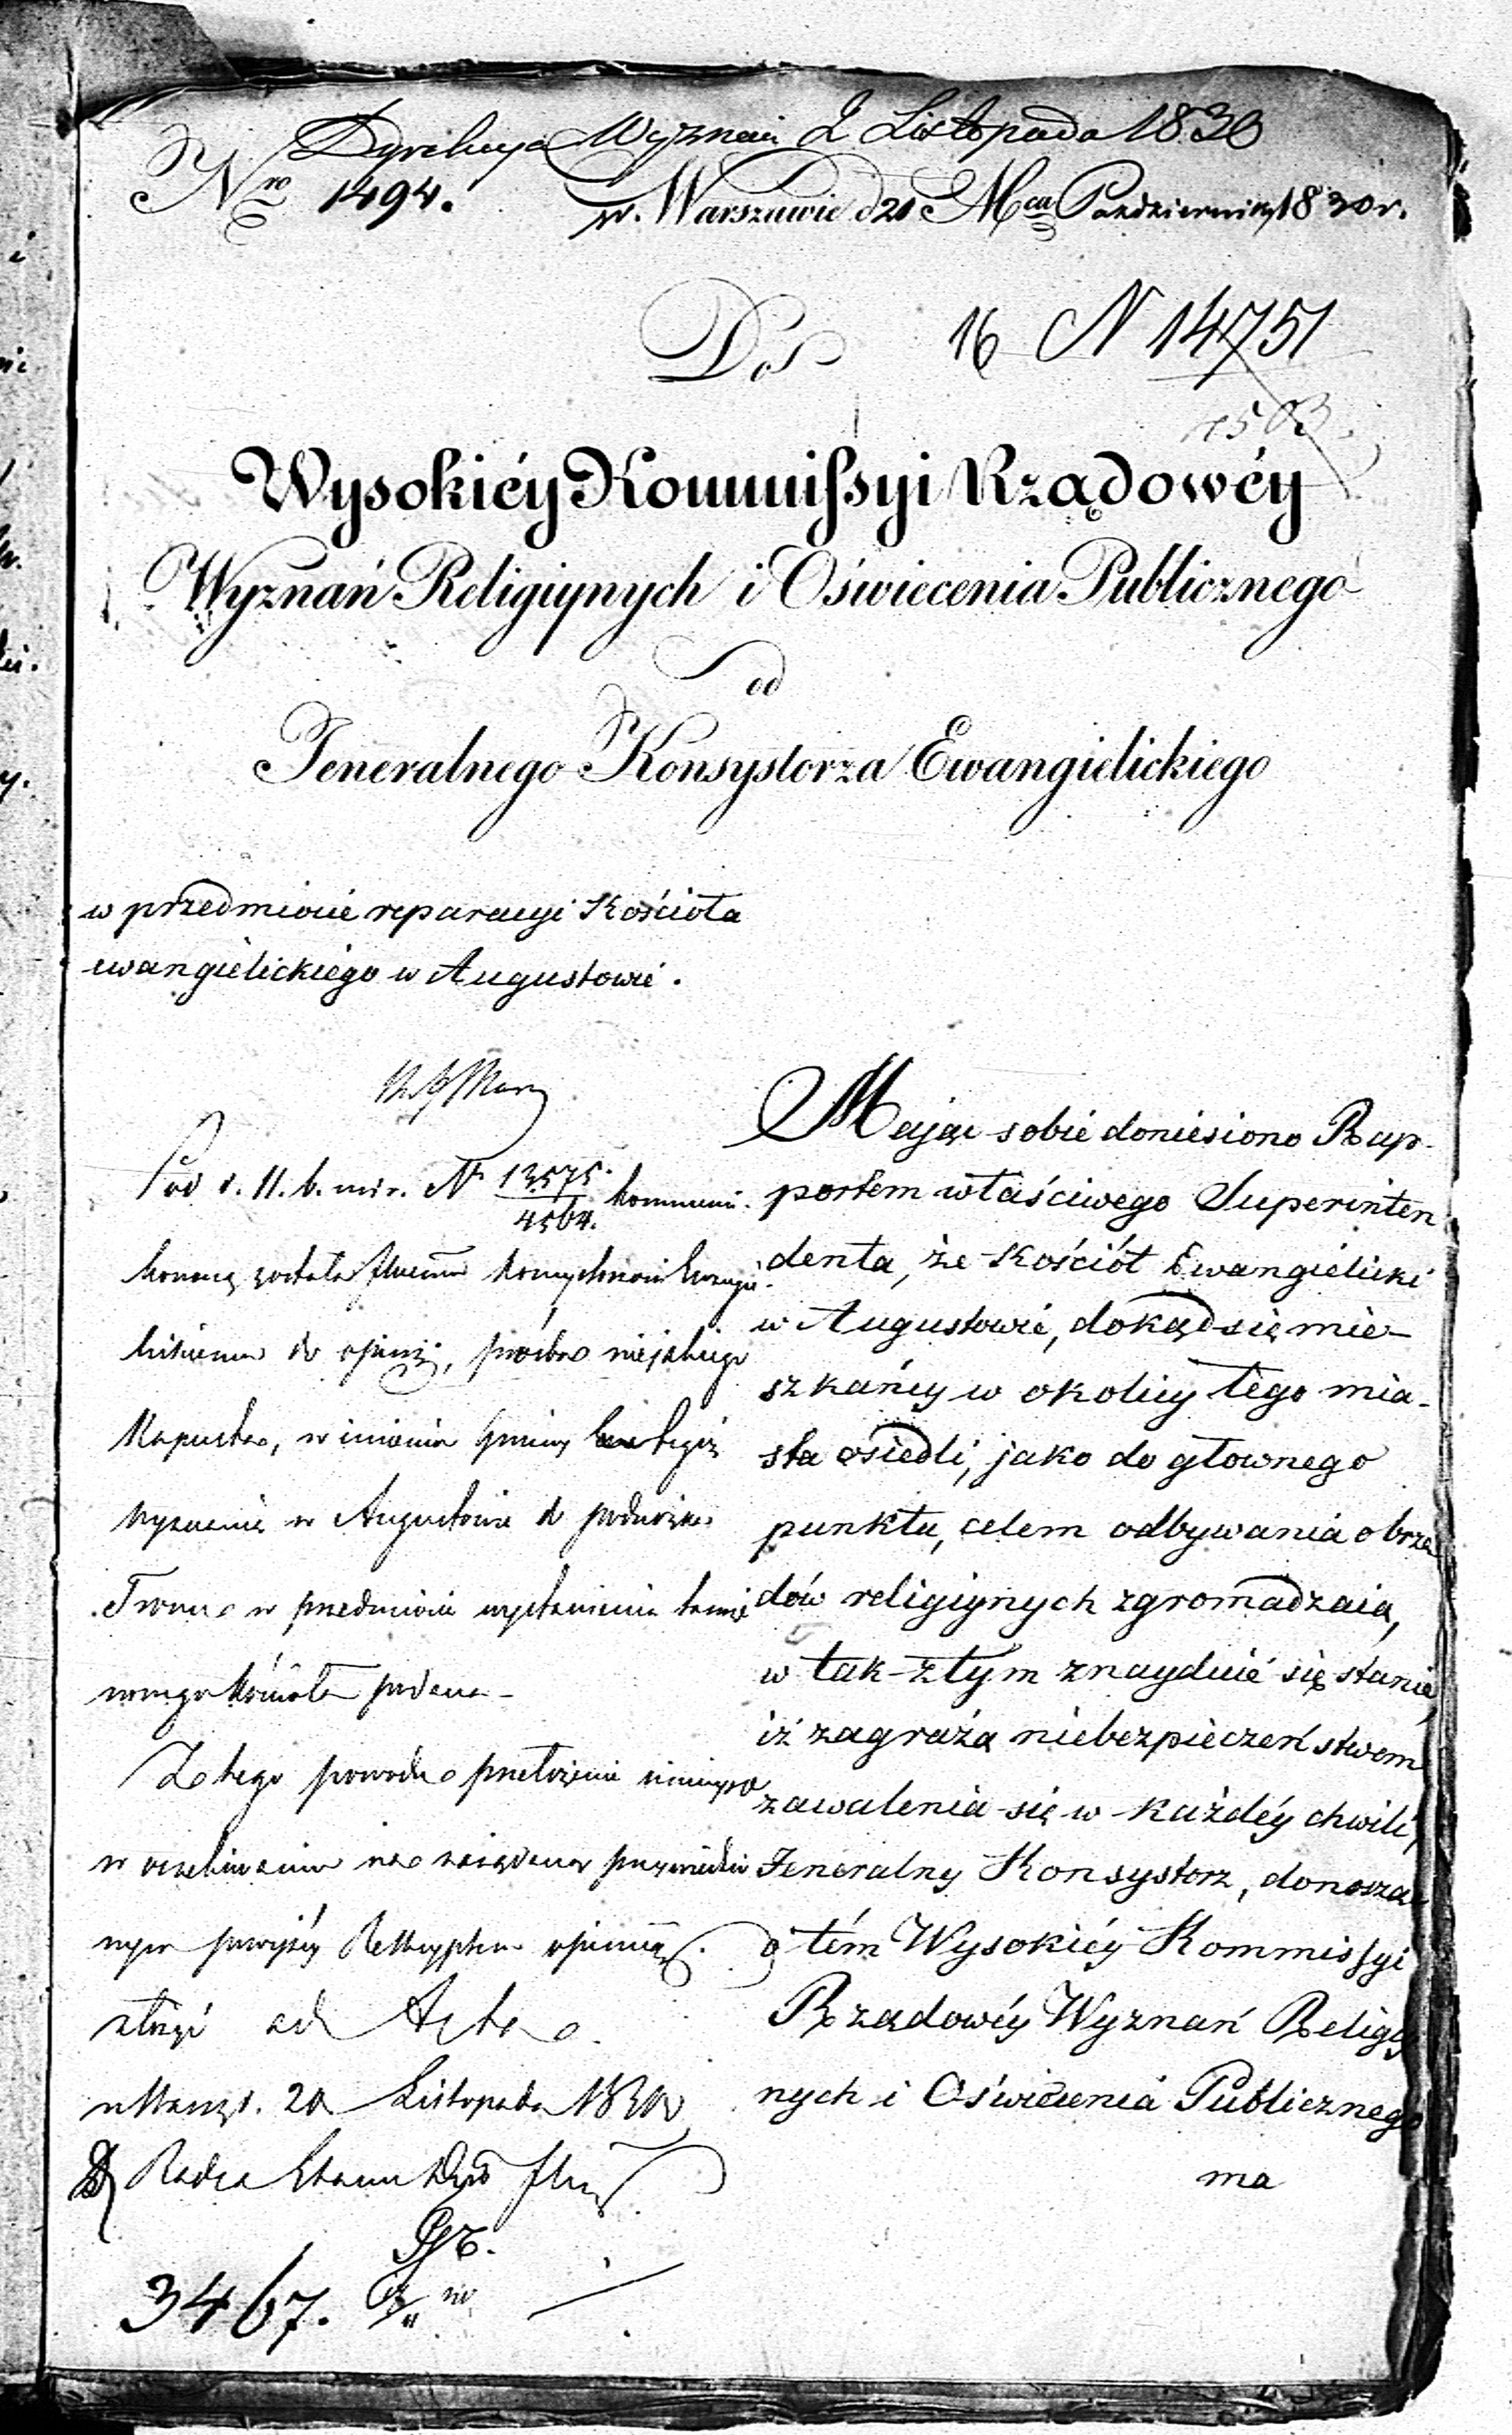 Dyrekcya Wyznań 2 Listopada 1830
Nro 1494. w Warszawie d 20 Mca Października 1830 r.
Do 16 N 14751
1503
Wysokiéy Kommissyi Rządowéy
Wyznań Religiynych i Oświecenia Publicznego
od
Jeneralnego Konsystorza Ewangielickiego
w przedmiocie reparacyi Kościoła
ewangielickiego w Augustowie.
Mając sobie doniesiono Rap-
portem właściwego Superinten
denta, że Kościół Ewangielicki
w Augustowie, dokąd się mie-
szkańcy w okolicy tego mia-
sta osiedli, jako do głownego
punktu, celem odbywania obrzą
dów religiynych zgromadzaią,
w tak złym znayduie się stanie
iż zagraża niebezpieczeństwem
zawalenia się w każdéy chwili,
Jeneralny Konsystorz, donosząc
o tém Wysokiéy Kommissyi
Rządowéy Wyznań Religiy
nych i Oświecenia Publicznego
ma
Pod d. 11. b. m i r. N 13575. kommuni-
4564.
kowaną została
do opinii, prośba niejakiego
Kapusta, w imieniu Gminy tegoż
wyznania w Augustowie do podnóżka
Tronu w przedmiocie wystawienia tamże
nowego kościoła podana
Z tego powodu przełożenie niniejsze
w oczekiwaniu na
powyżéy Reskryptem opinią
złożyć ad Acta.
w Warsz d. 20 Listopada 1830
Radca Stanu
3467.